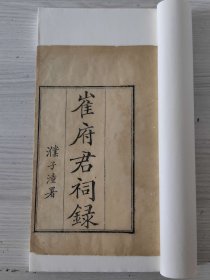 崔府君祠錄
濮子潼署